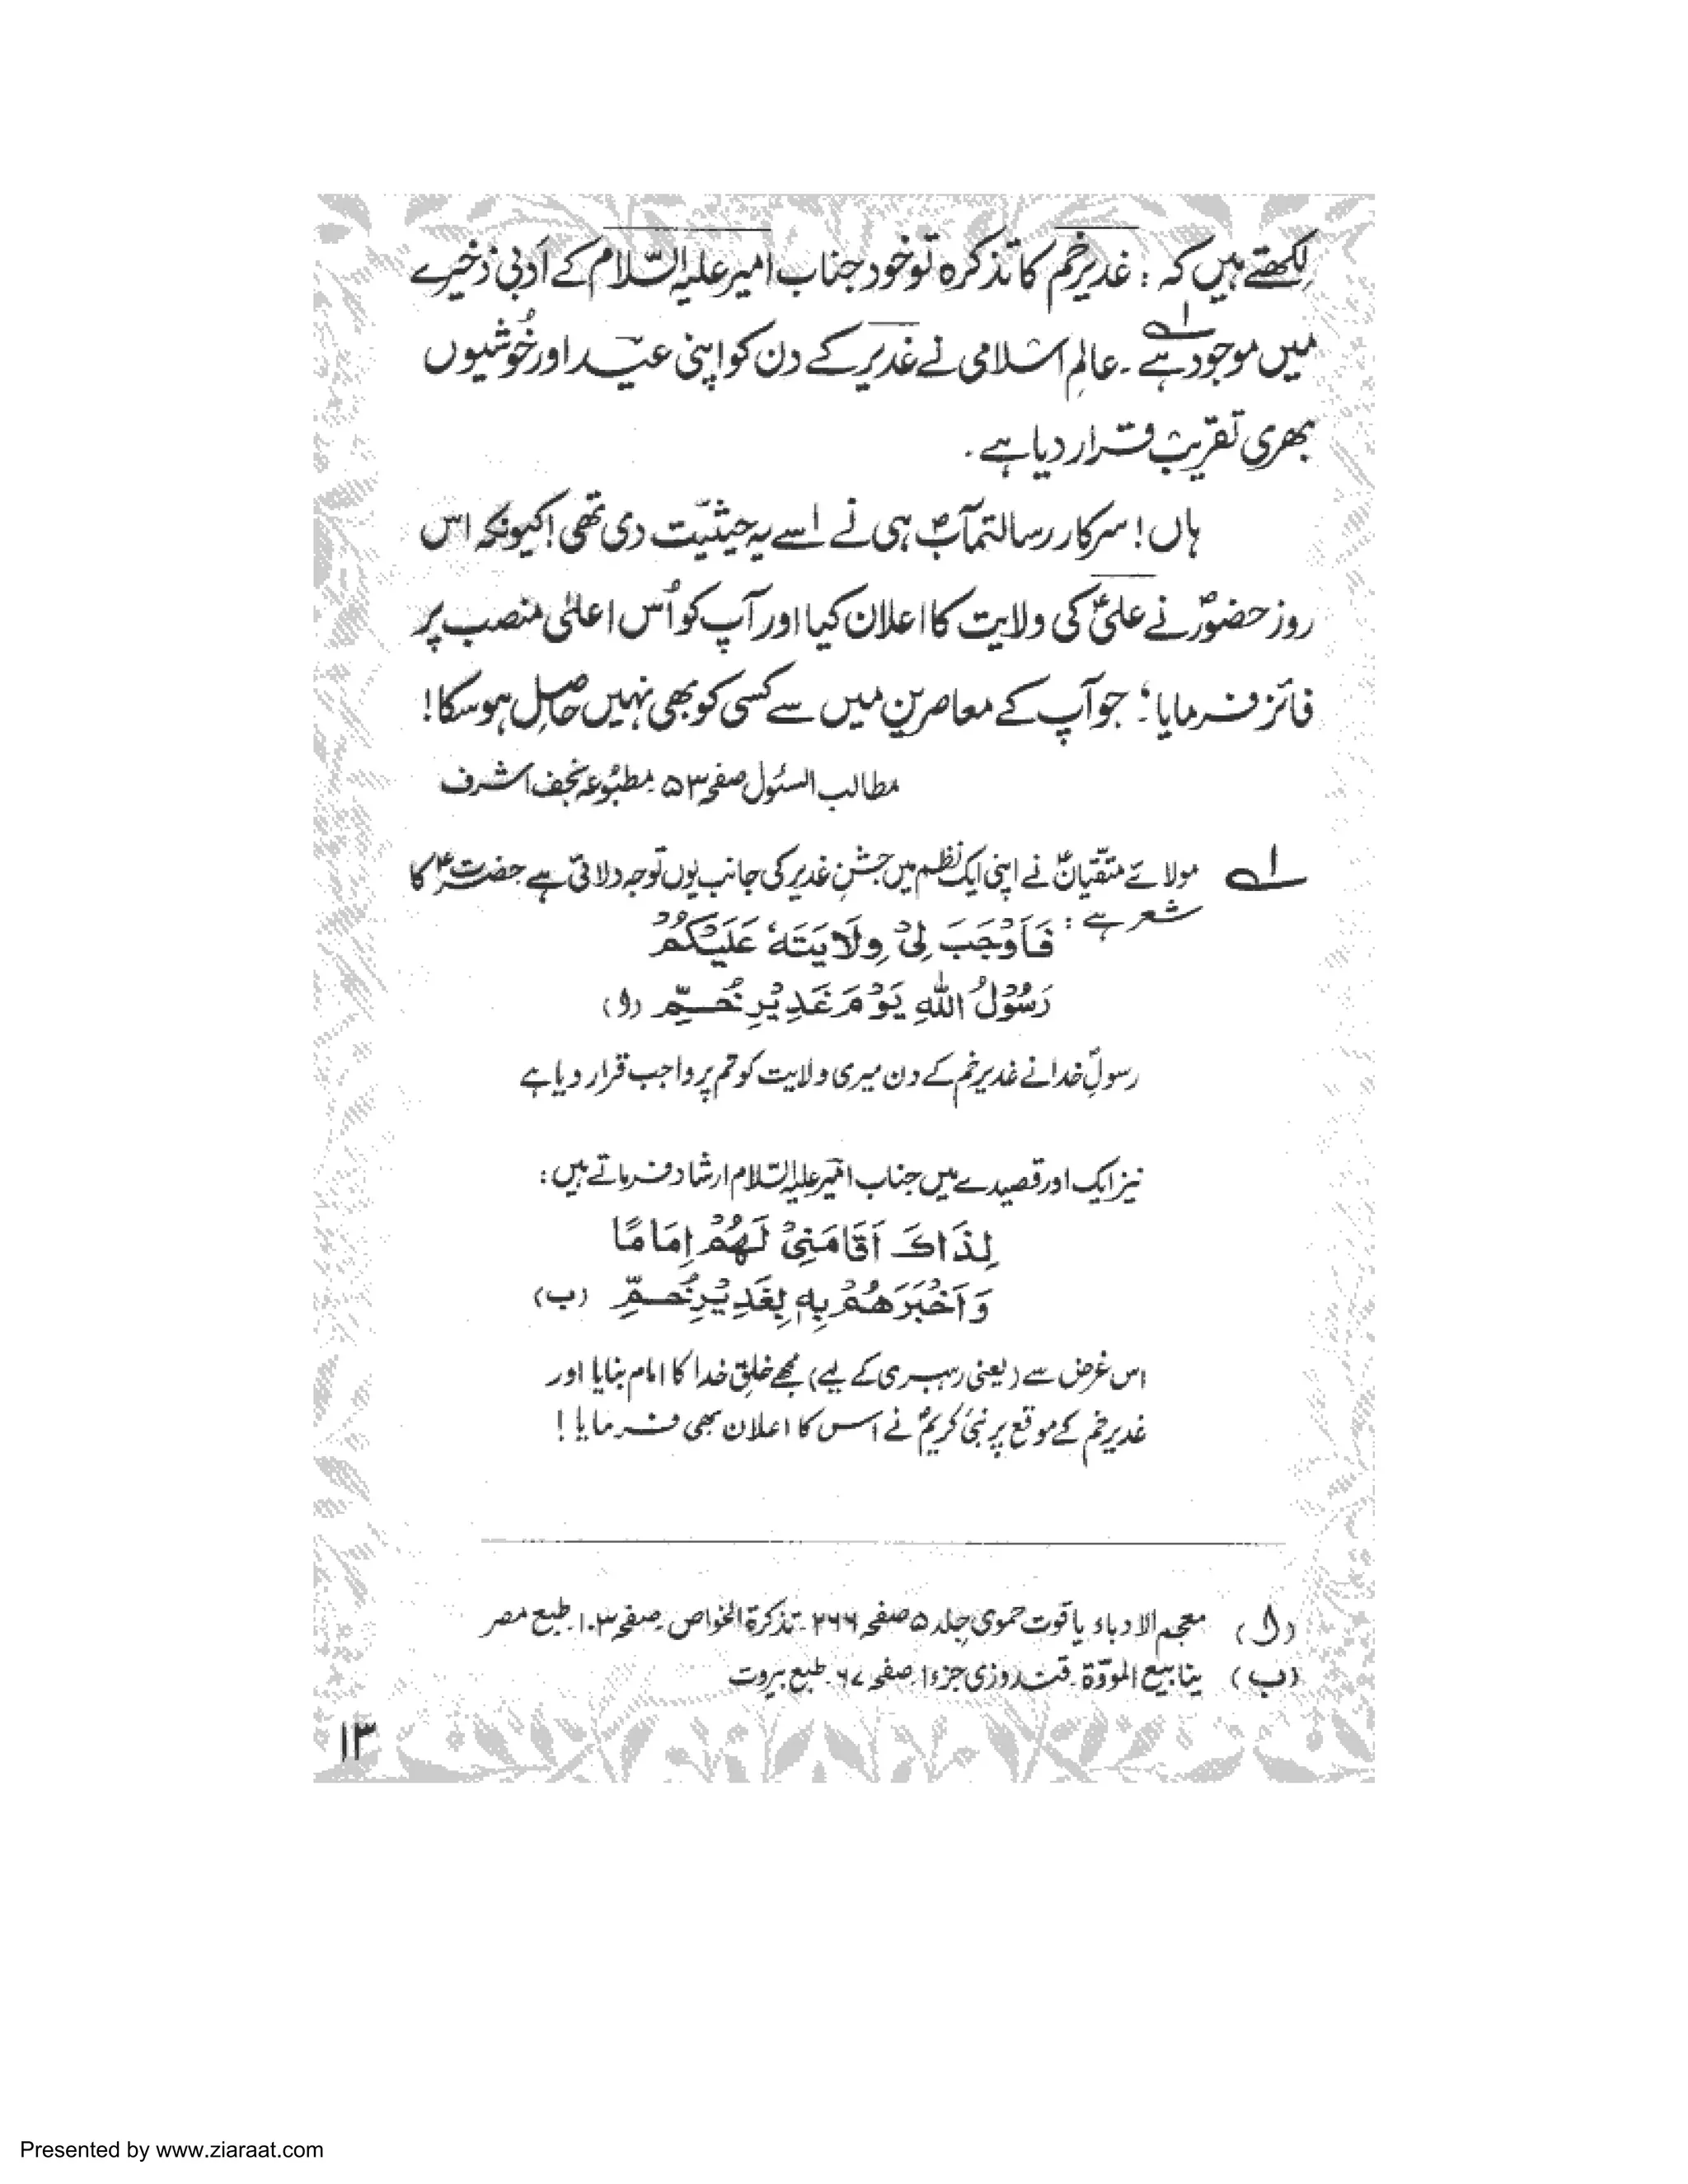 لکھتے ہیں کہ : غدیرِ خم کا تذکرہ تو خود جناب امیر علیہ السّلام کے اَدبی ذخیرے
میں موجود ہے ۱؎ ۔ عالمِ اسلامی نے غدیر کے دن کو اپنی عید اور خُوشیوں
بھری تقریب قرار دیا ہے ۔
ہاں ! سرکار رسالتمآبؐ ہی نے اسے یہ حیثیّت دی تھی ! کیونکہ اس
روز حضورؐ نے علیؑ کی ولایت کا اعلان کیا اور آپ کو اُس اعلیٰ منصب پر
فائز فرمایا ؛ جو آپ کے معاصرین میں سے کسی کو بھی نہیں حاصِل ہو سکا !
مطالب السئول صفحہ ۵۳ مطبُوعہ نجف اشرف
۱؎ مولائے متّقیانؑ نے اپنی ایک نظم میں جشنِ غدیر کی جانب یُوں توجہ دلائی ہے حضرتؑ کا
شعر ہے :
فَاَوْجَبَ لِیْ وِلَایَتَہٗ عَلَیْکُمْ
رَسُوْلُ اللهِ یَوْمَ غَدِیْرِ خُمٍّ (ا)
رسولِؐ خدا نے غدیر خم کے دن میری ولایت کو تم پر واجب قرار دیا ہے
نیز ایک اور قصیدے میں جناب امیر علیہ السّلام ارشاد فرماتے ہیں :
لِذَاکَ اَقَامَنِیْ لَھُمْ اِمَامًا
وَاَخْبَرَھُمْ بِہٖ بِغَدِیْرِ خُمٍّ (ب)
اس غرض سے (یعنی رہبری کے لیے) مجھے خلقِ خدا کا امام بنایا اور
غدیر خم کے موقع پر نبیٔ کریمؐ نے اس کا اعلان بھی فرمایا !
(ا) معجم الادباء یاقوت حموی جلد ۵ صفحہ ۲۶۶ ۔ تذکرة الخواص ۔ صفحہ ۱۰۳ ۔ طبع مصر
(ب) ینابیع المودّة ۔ قندوزی جزء ۱ ۔ صفحہ ۶۷ ۔ طبع بیروت
۱۳
Presented by www.ziaraat.com